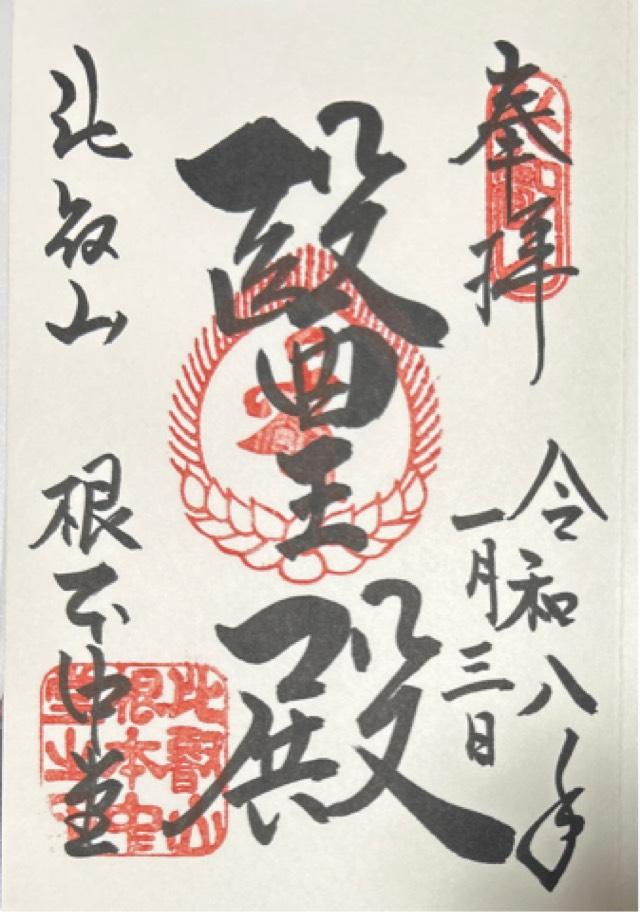 奉拝
令和八年
一月三日
醫王殿
比叡山 根本中堂
比叡山
根本中
堂之